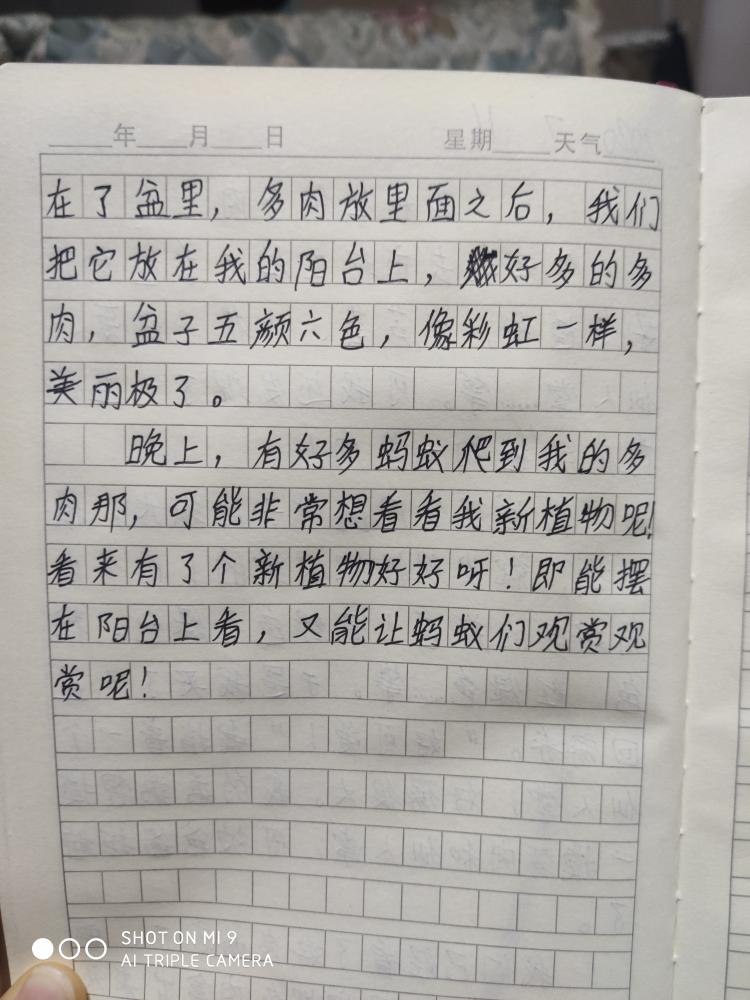 年 月 日 星期 天气
在了盆里，多肉放里面之后，我们
把它放在我的阳台上，好多的多
肉，盆子五颜六色，像彩虹一样，
美丽极了。
晚上，有好多蚂蚁爬到我的多
肉那，可能非常想看看我新植物呢！
看来有了个新植物好好呀！即能摆
在阳台上看，又能让蚂蚁们观赏观
赏呢！
SHOT ON MI 9
AI TRIPLE CAMERA